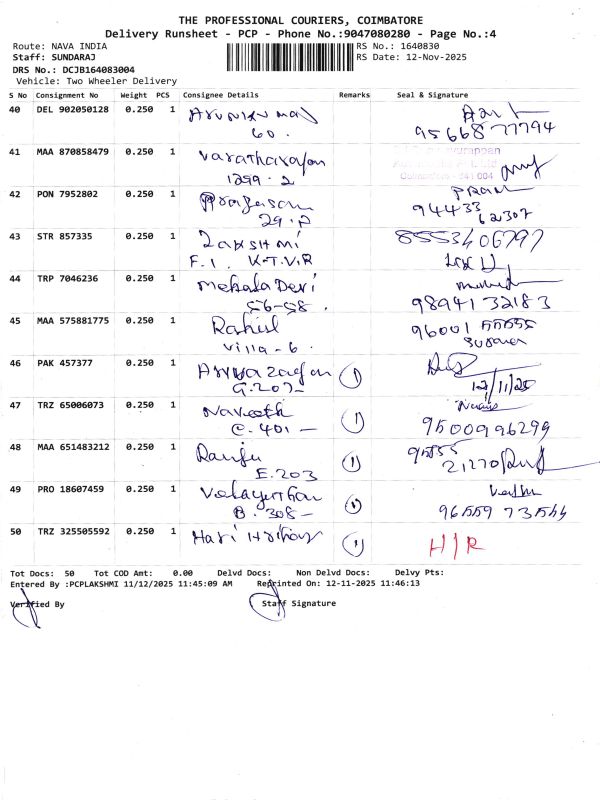 THE PROFESSIONAL COURIERS, COIMBATORE
Delivery Runsheet - PCP - Phone No.:9047080280 - Page No.:4
Route: NAVA INDIA RS No.: 1640830
Staff: SUNDARAJ RS Date: 12-Nov-2025
DRS No.: DCJB164083004
Vehicle: Two Wheeler Delivery
S No Consignment No Weight PCS Consignee Details Remarks Seal & Signature
40 DEL 902050128 0.250 1 Arunkumar
60. 95668 77794
41 MAA 870858479 0.250 1 Varatharajan
1299.2 Coimbatore - 641 004
42 PON 7952802 0.250 1 PRAM
29.2 94433 62307
43 STR 857335 0.250 1 Lakshmi 8553406797
F.1. K.T.V.R
44 TRP 7046236 0.250 1 Mehala Devi
56-58. 98941 32183
45 MAA 575881775 0.250 1 Rahul 96001 55555
Villa-6.
46 PAK 457377 0.250 1 (1)
G.207- 12/11/25
47 TRZ 65006073 0.250 1 Naveeth (1)
C.401- 9500996299
48 MAA 651483212 0.250 1 Ranju (1) 95855
E.203 21270
49 PRO 18607459 0.250 1 Velayuthan (1)
B.308- 96559 73544
50 TRZ 325505592 0.250 1 Hari (1) H/R
Tot Docs: 50 Tot COD Amt: 0.00 Delvd Docs: Non Delvd Docs: Delvy Pts:
Entered By :PCPLAKSHMI 11/12/2025 11:45:09 AM Reprinted On: 12-11-2025 11:46:13
Verified By Staff Signature